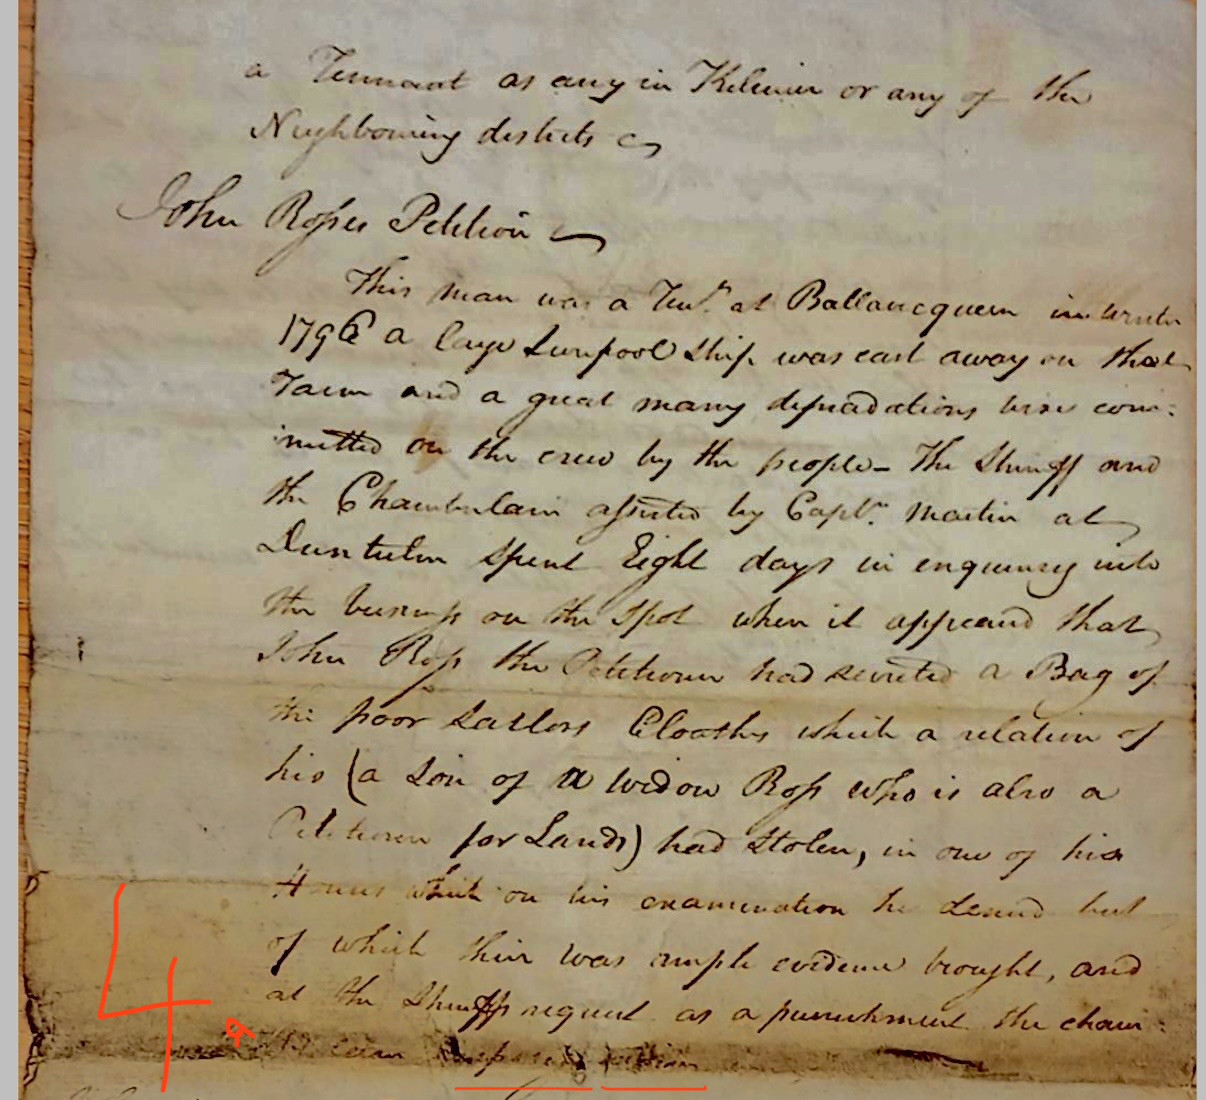 a Tennant as any in Kilmuir or any of the
Neighbouring districts
John Rosses Petition
This man was a Tent. at Ballancqueen in Winter
1796 a large Liverpool Ship was cast away on that
Farm and a great many depradations were com:
mitted on the crew by the people - The Sheriff and
the Chamberlain assisted by Captn. Martin at
Duntulm spent Eight days in enquiring into
the business on the Spot when it appeared that
John Ross the Petitioner had secreted a Bag of
the poor Sailors Cloaths which a relation of
his (a Son of a Widow Ross who is also a
Petitioner for Lands) had Stolen, in one of his
Houses which on his examination he denied but
of which their was ample evidence brought, and
at the Sheriffs request as a punishment the cham:
4